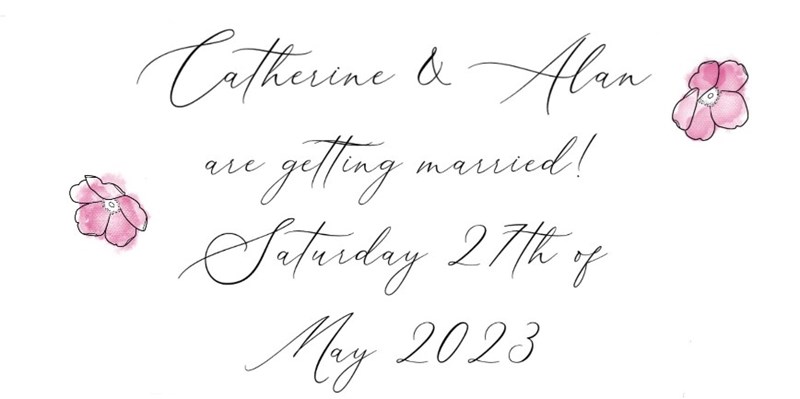 Catherine & Alan
are getting married!
Saturday 27th of
May 2023